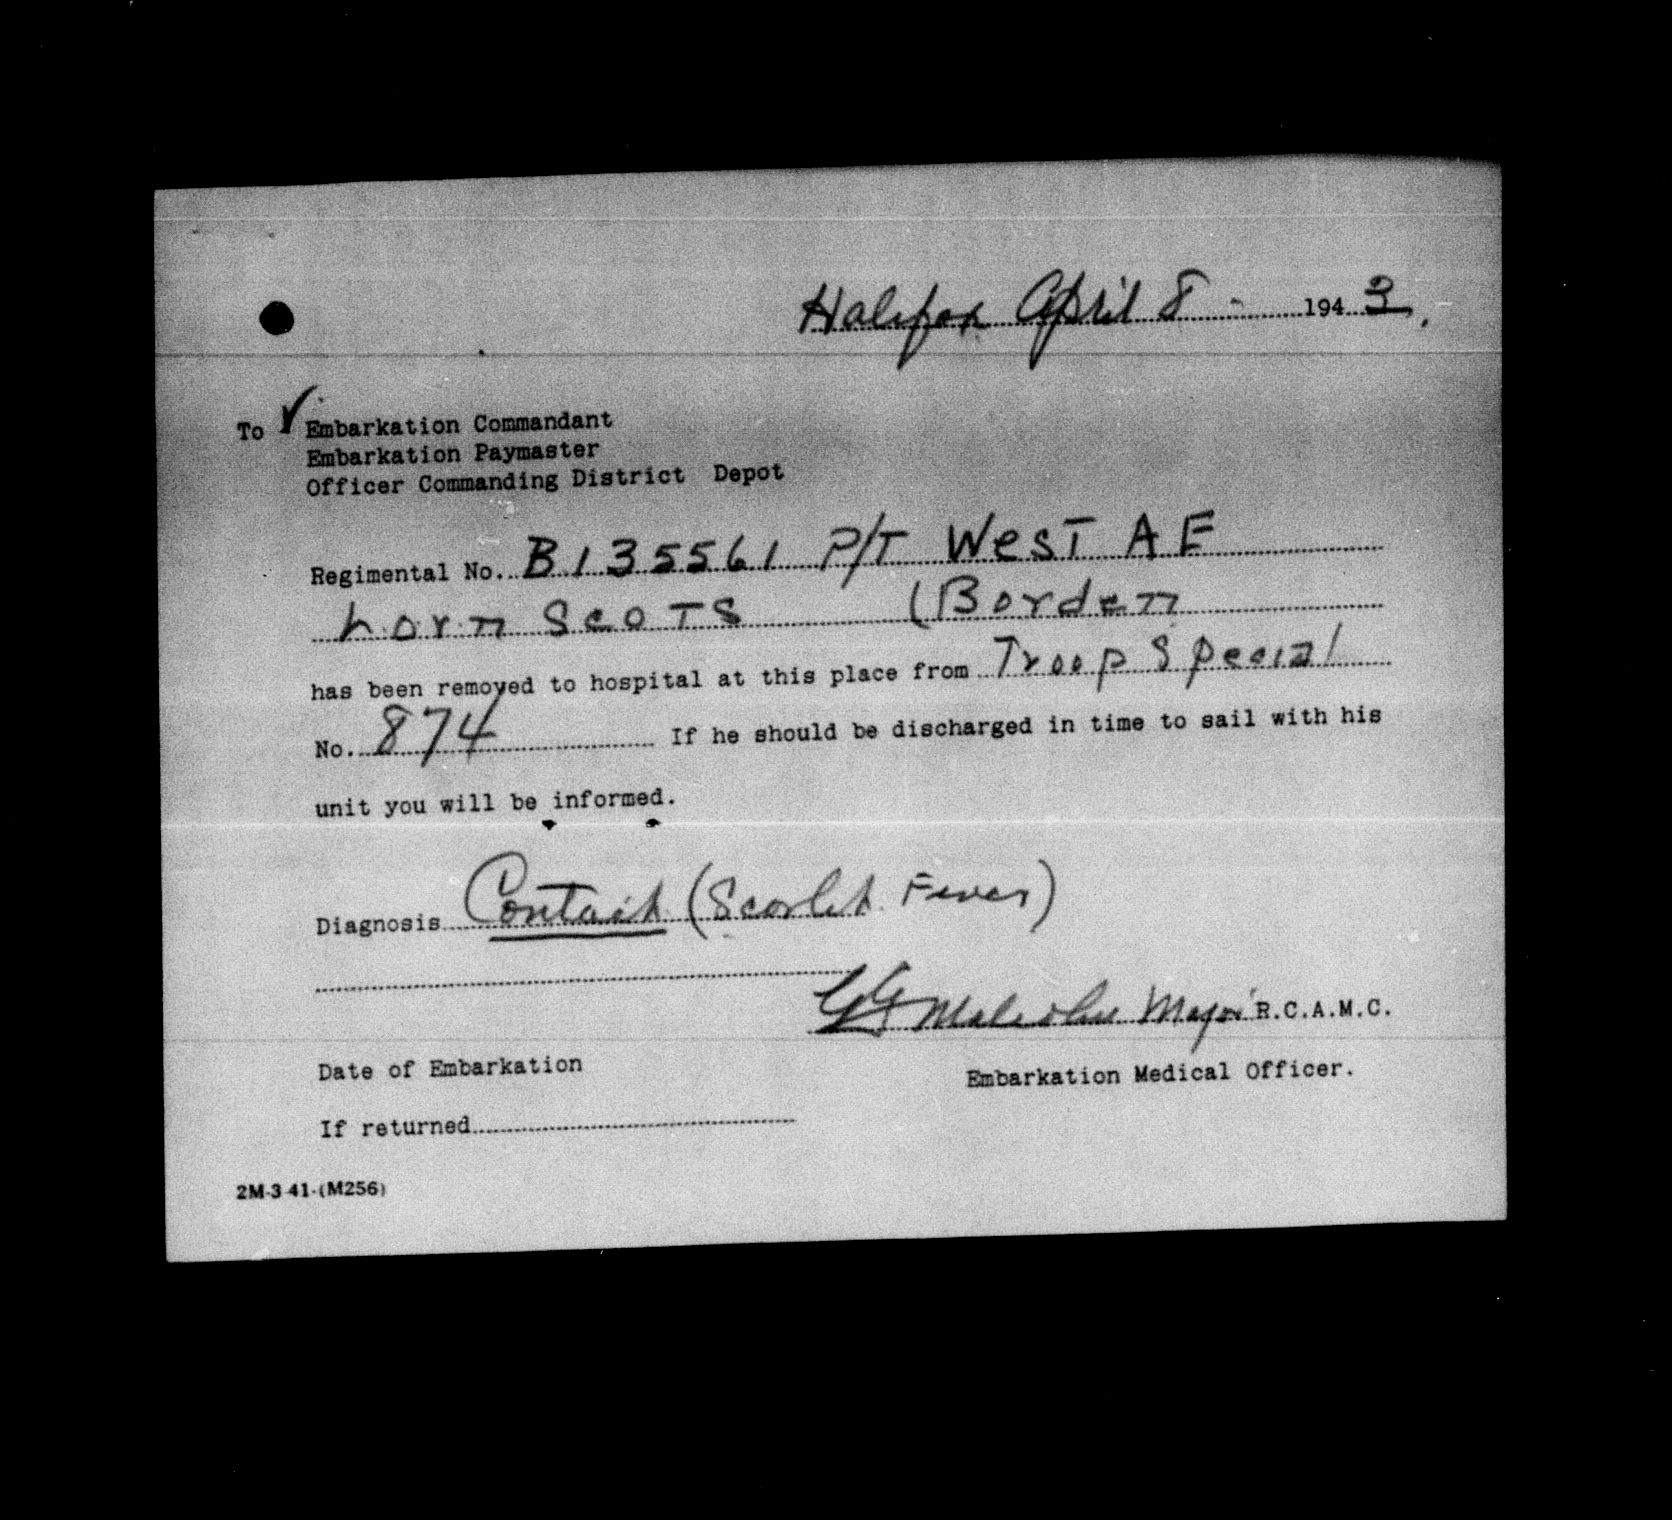 Halifax April 8 - 1943.
To ✓ Embarkation Commandant
Embarkation Paymaster
Officer Commanding District Depot
Regimental No. B135561 P/T West A E
Lorn Scots (Borden
has been removed to hospital at this place from Troop Special
No. 874 If he should be discharged in time to sail with his
unit you will be informed.
Diagnosis Contact (Scarlet Fever)
Malcolm Major R.C.A.M.C.
Date of Embarkation
Embarkation Medical Officer.
If returned
2M-3-41-(M256)